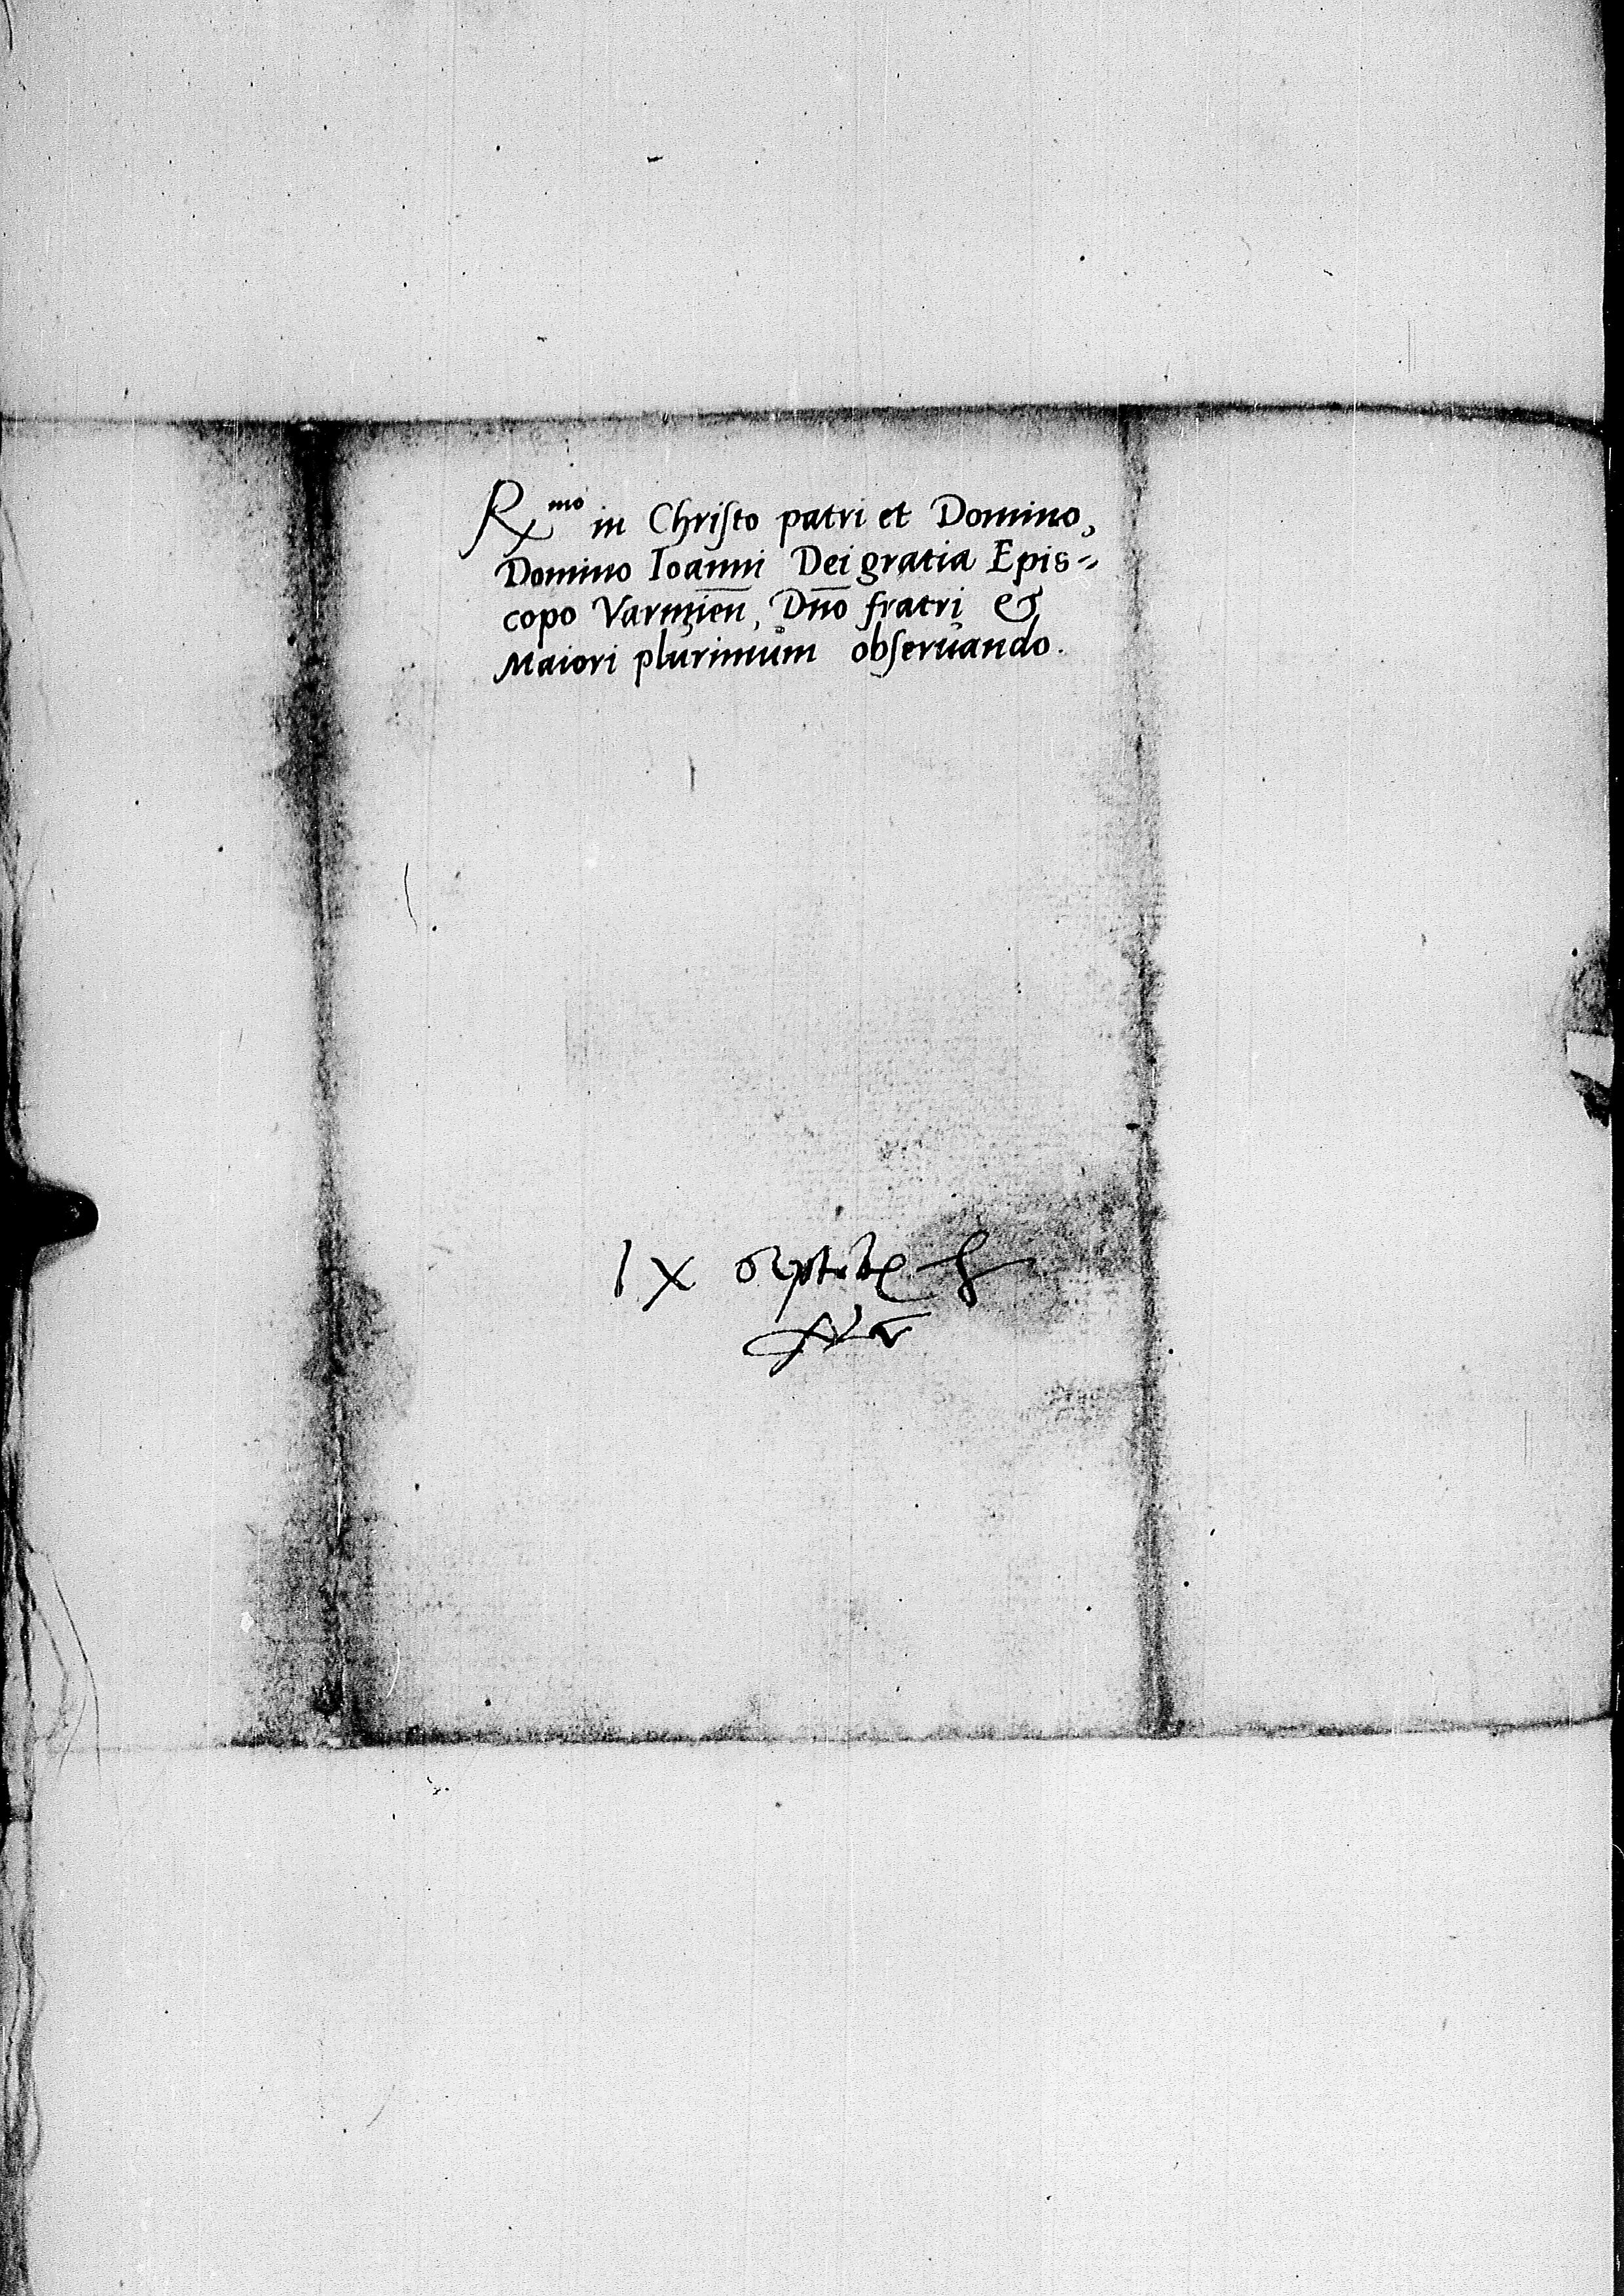 R^mo in Christo patri et Domino,
Domino Ioanni Dei gratia Epis=
copo Varmien̄, Dn̄o fratri &
Maiori plurimum obseruando.
IX